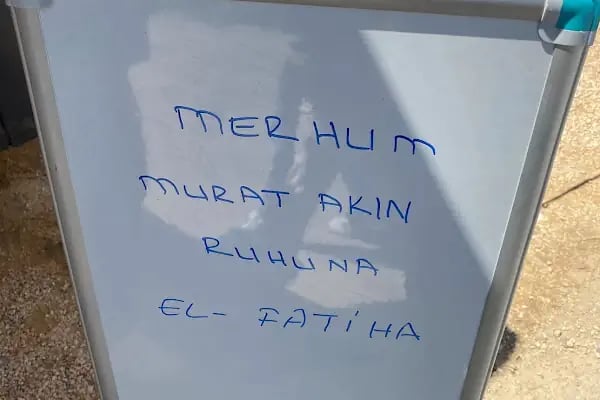 MERHUM
MURAT AKIN
RUHUNA
EL- FATİHA